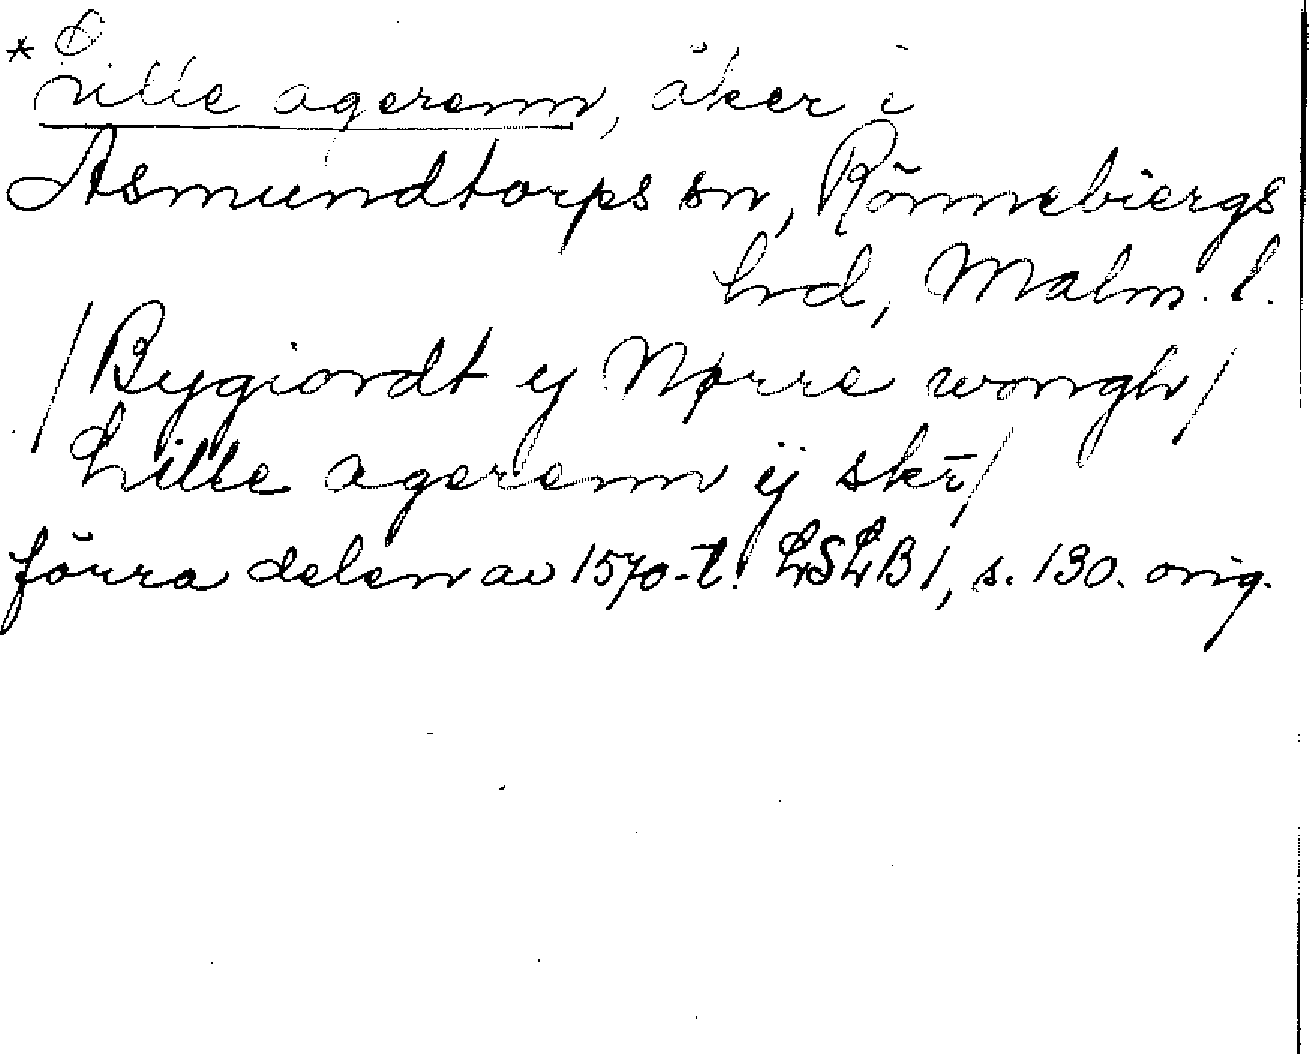 * Lille agerenn, åker i
Asmundtorps sn, Rönnebergs
hd, Malm. l.
/Bygiordt ij Nørre wongh/
Lille agerenn ij skr/
förra delen av 1570-t. LSLB 1, s. 130. orig.